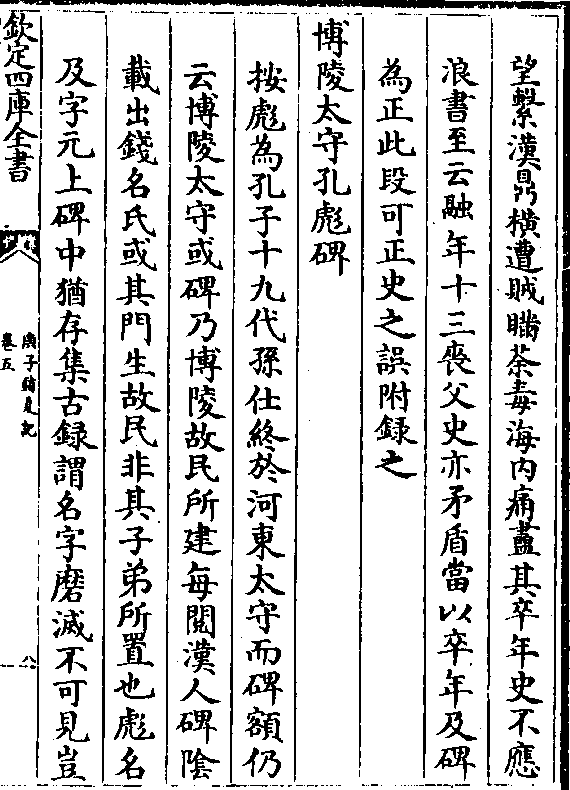 望繫漢鼎橫遭賊瞞荼毒海内痛盡其卒年史不應
浪書至云融年十三喪父史亦矛盾當以卒年及碑
為正此段可正史之誤附録之
博陵太守孔彪碑
按彪為孔子十九代孫仕終於河東太守而碑額仍
云博陵太守或碑乃博陵故民所建每閱漢人碑陰
載出錢名氏或其門生故民非其子弟所置也彪名
及字元上碑中猶存集古録謂名字磨滅不可見豈
欽定四庫全書
庚子銷夏記
卷五
八